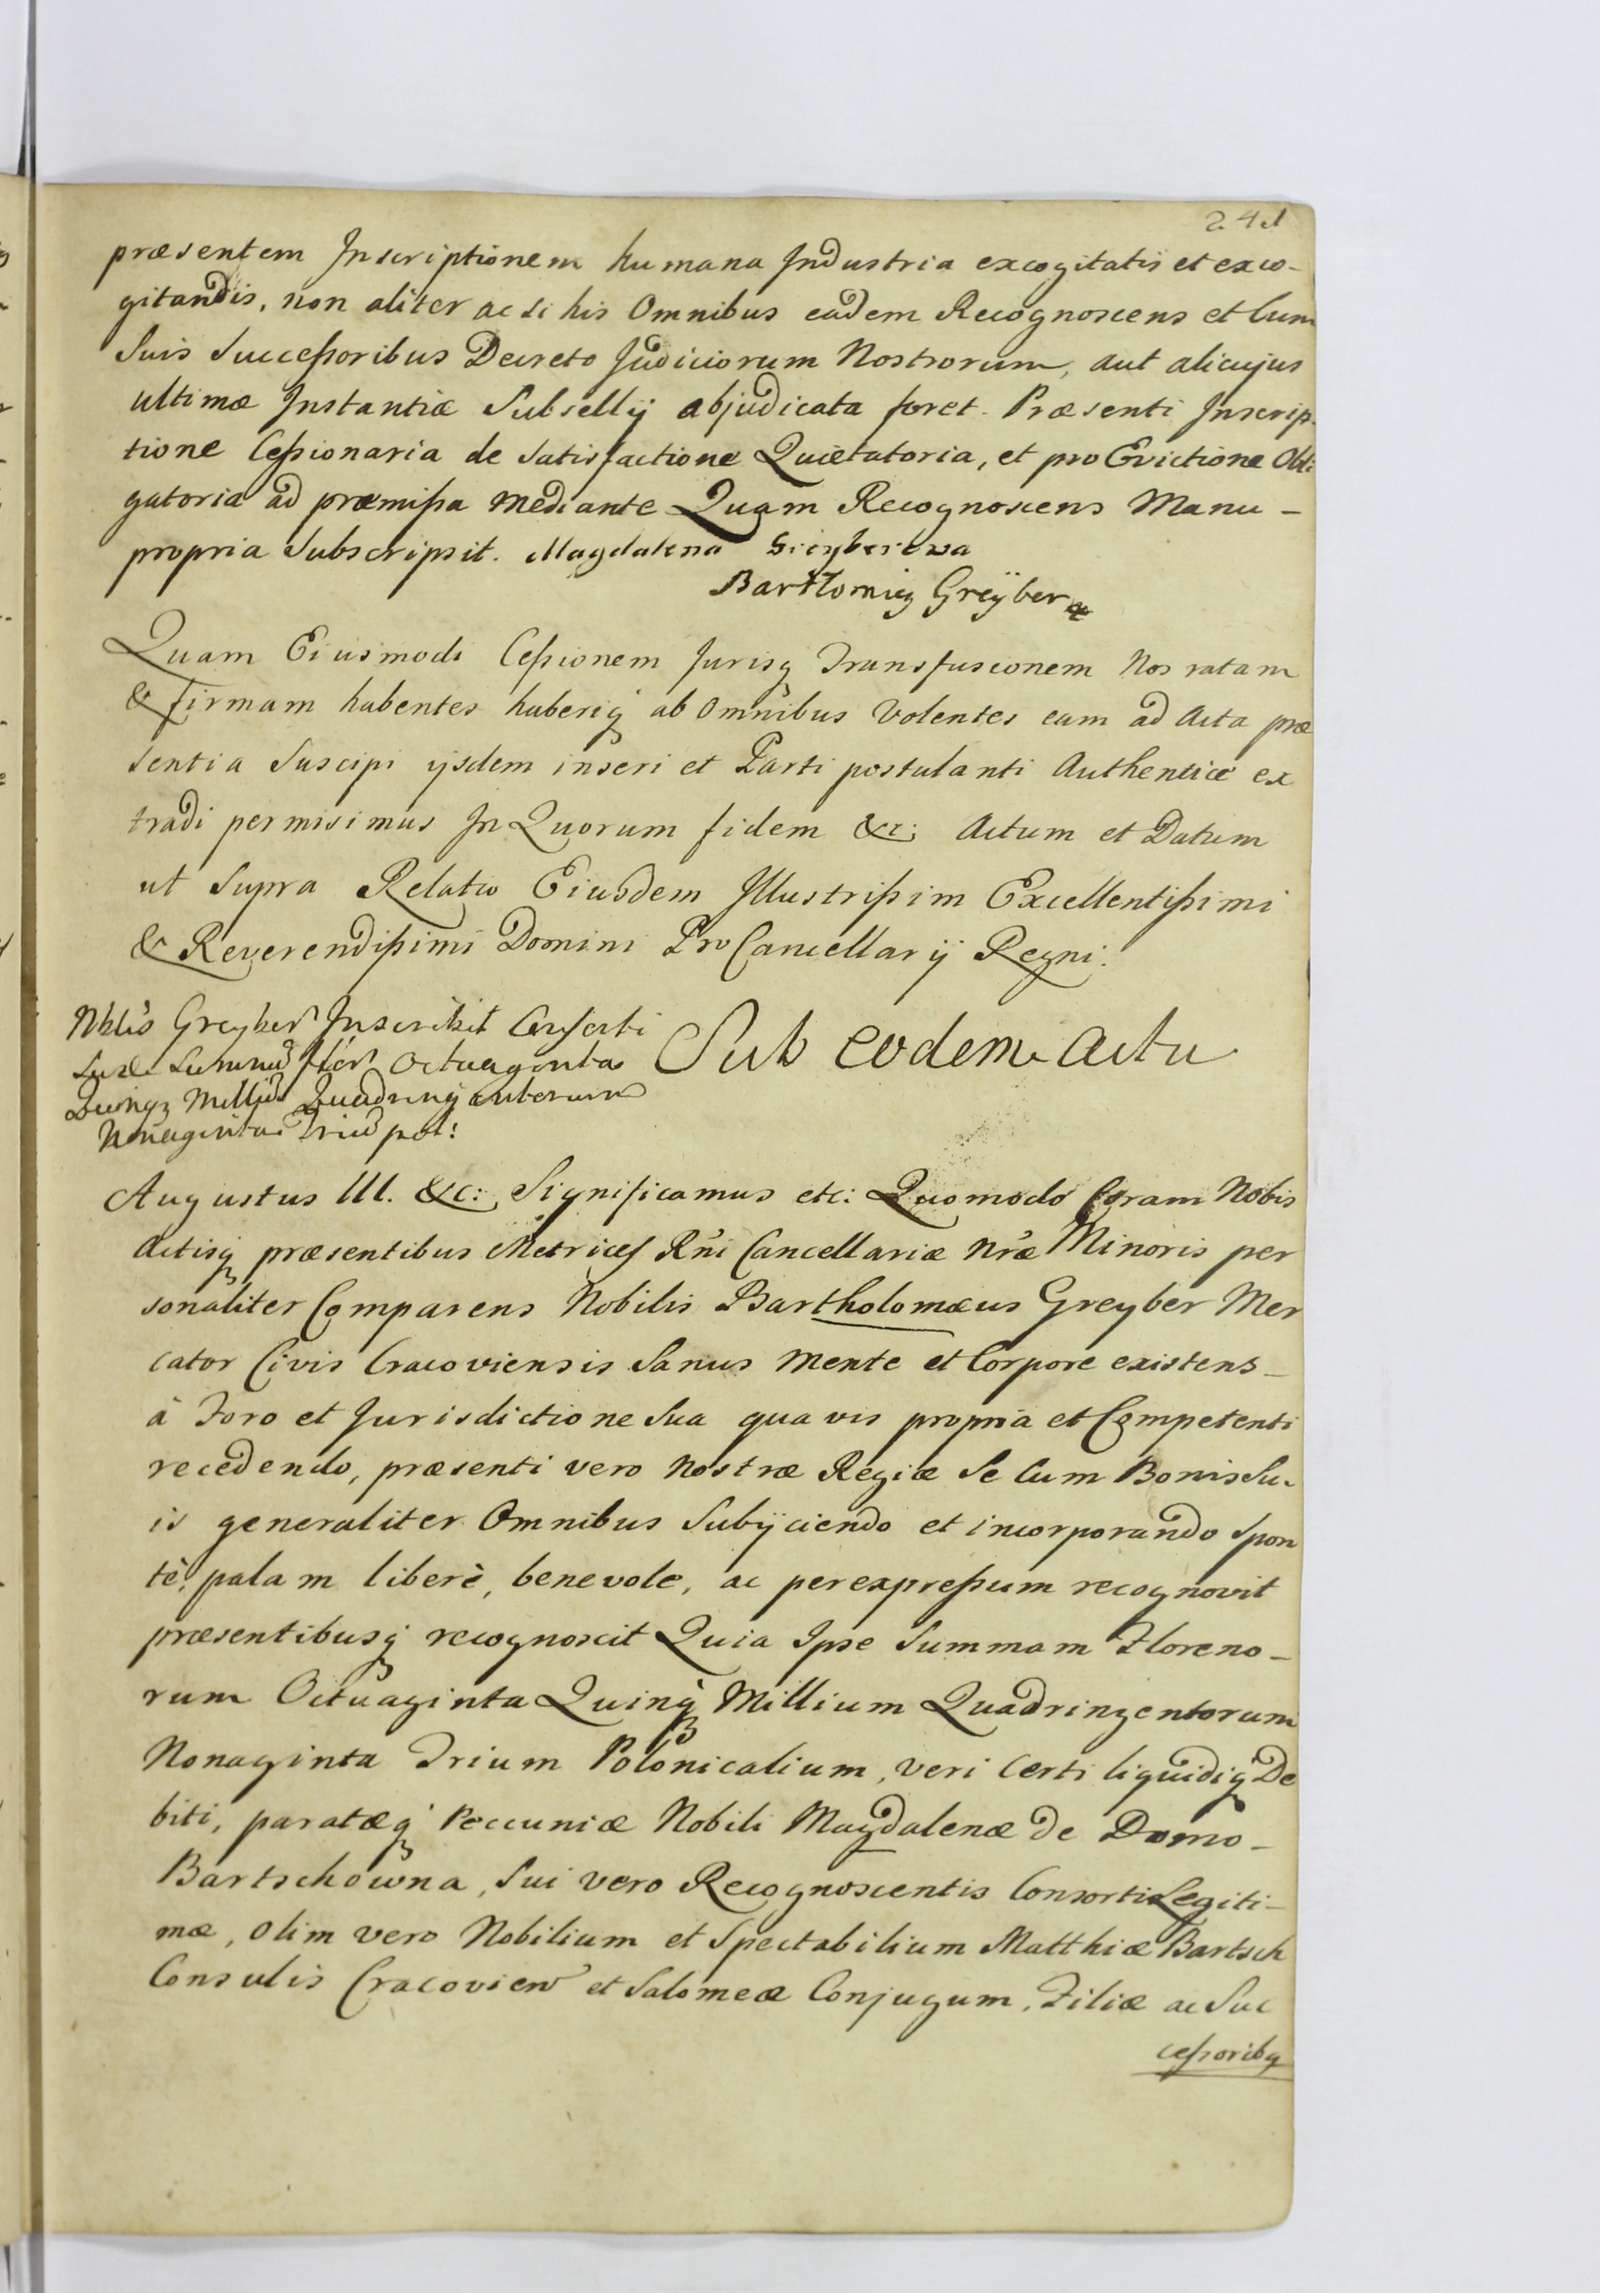 241
præsentem Inscriptionem humana Industria excogitatis et exco-
gitandis, non aliter ac si his Omnibus eadem Recognoscens et Cum
Suis Successoribus Decreto Judiciorum Nostrorum, aut alicujus
ultimæ Instantiæ Subsellij abjudicata foret. Præsenti Inscrip-
tione Cessionaria de Satisfactione Quietatoria, et pro Evictione Obli
gatoria ad præmissa mediante Quam Recognoscens Manu -
propria Subscripsit. Magdalena Greyberowa
Bartłomiey Greÿber
Quam Eiusmodi Cessionem Jurisq Transfusionem Nos ratam
& firmam habentes haberiq ab Omnibus Volentes eam ad Acta præ
sentia Suscipi ijsdem inseri et Parti postulanti Authentice ex
tradi permisimus In Quorum fidem &c: Actum et Datum
ut Supra Relatio Eiusdem Illustrissim Excellentissimi
& Reverendissimi Domini Pro Cancellarij Regni.
Nblis Greyber Inscribit Consorti
Suæ Summā flor Octuaginta
Quinqz Milliū Quadringentorum
Nonaginta Triū pol:
Sub eodem Actu
Augustus III. &c: Significamus etc: Quomodo Coram Nobis
Actisq præsentibus Metrices Rni Cancellariæ nræ Minoris per
sonaliter Comparens Nobilis Bartholomæus Greyber Mer
cator Civis Cracoviensis Sanus mente et Corpore existens -
à Foro et Jurisdictione Sua quavis propria et Competenti
recedendo, præsenti vero Nostræ Regiæ Se Cum Bonis Su-
is generaliter Omnibus Subijciendo et incorporando Spon
tè, palam liberè, benevole, ac per expressum recognovit
præsentibusq recognoscit Quia Ipse Summam Floreno-
rum Octuaginta Quinq Millium Quadringentorum
Nonaginta Trium Polonicalium, veri Certi liquidiq De
biti, paratæq Peccuniæ Nobili Magdalenæ de Domo -
Bartschowna, Sui vero Recognoscentis Consorti Legiti-
mæ, olim vero Nobilium et Spectabilium Matthiæ Bartsch
Consulis Cracovien et Salomeæ Conjugum, Filiæ ac Suc
cessoribq